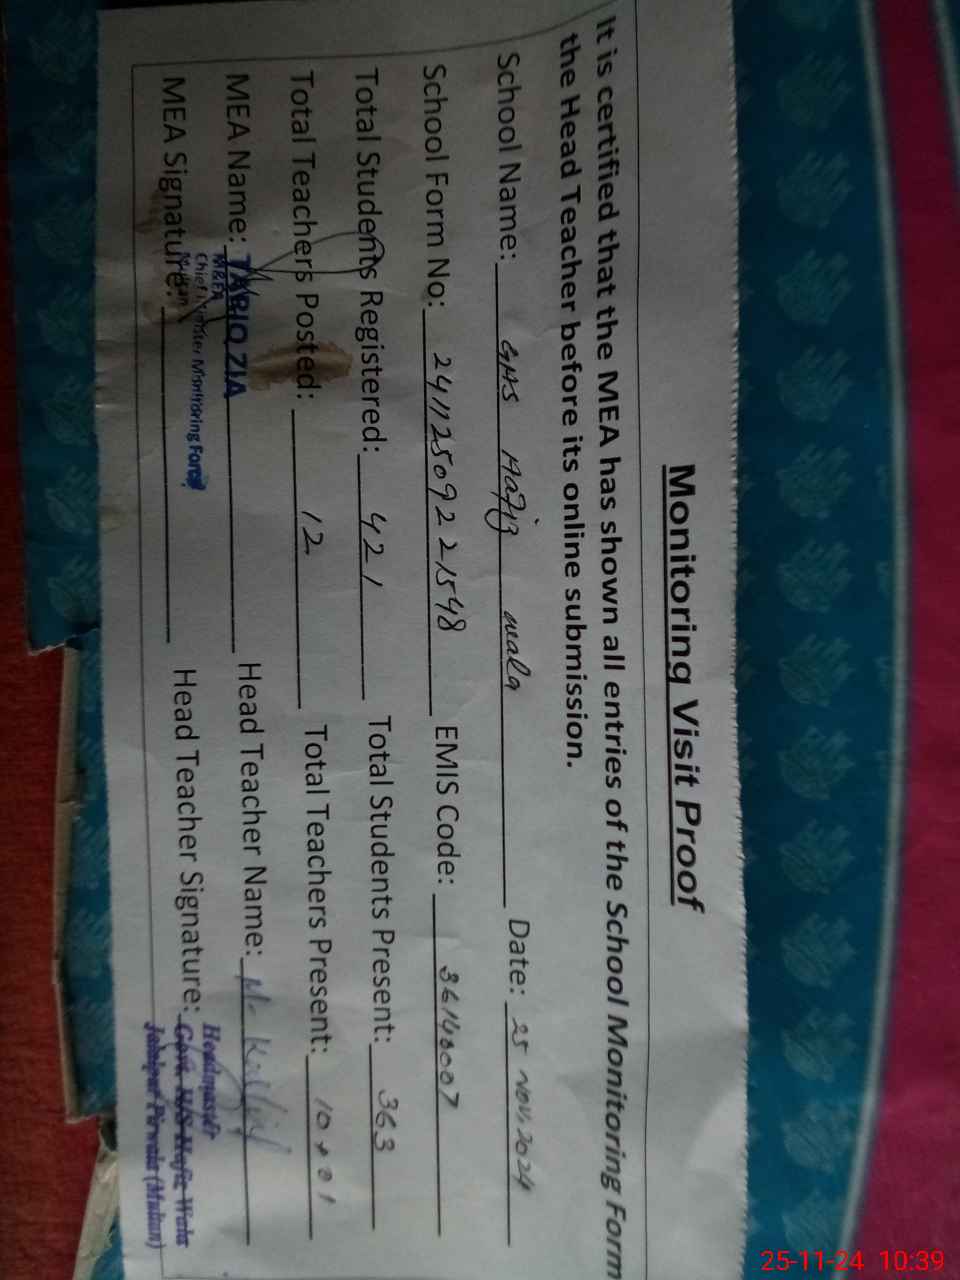 Monitoring Visit Proof
It is certified that the MEA has shown all entries of the School Monitoring Form
the Head Teacher before its online submission.
School Name: GHS Hafiz wala Date: 25 Nov, 2024
School Form No: 24112509221548 EMIS Code:
Total Students Registered: 421 Total Students Present: 363
Total Teachers Posted: 12 Total Teachers Present: 10+01
MEA Name: TARIQ ZIA Head Teacher Name:
M&EA
Chief Minister Monitoring Force
Multan
MEA Signature: Head Teacher Signature:
Headmaster
Govt. H/S Hafiz Wala
Jalalpur Pirwala (Multan)
25-11-24 10:39